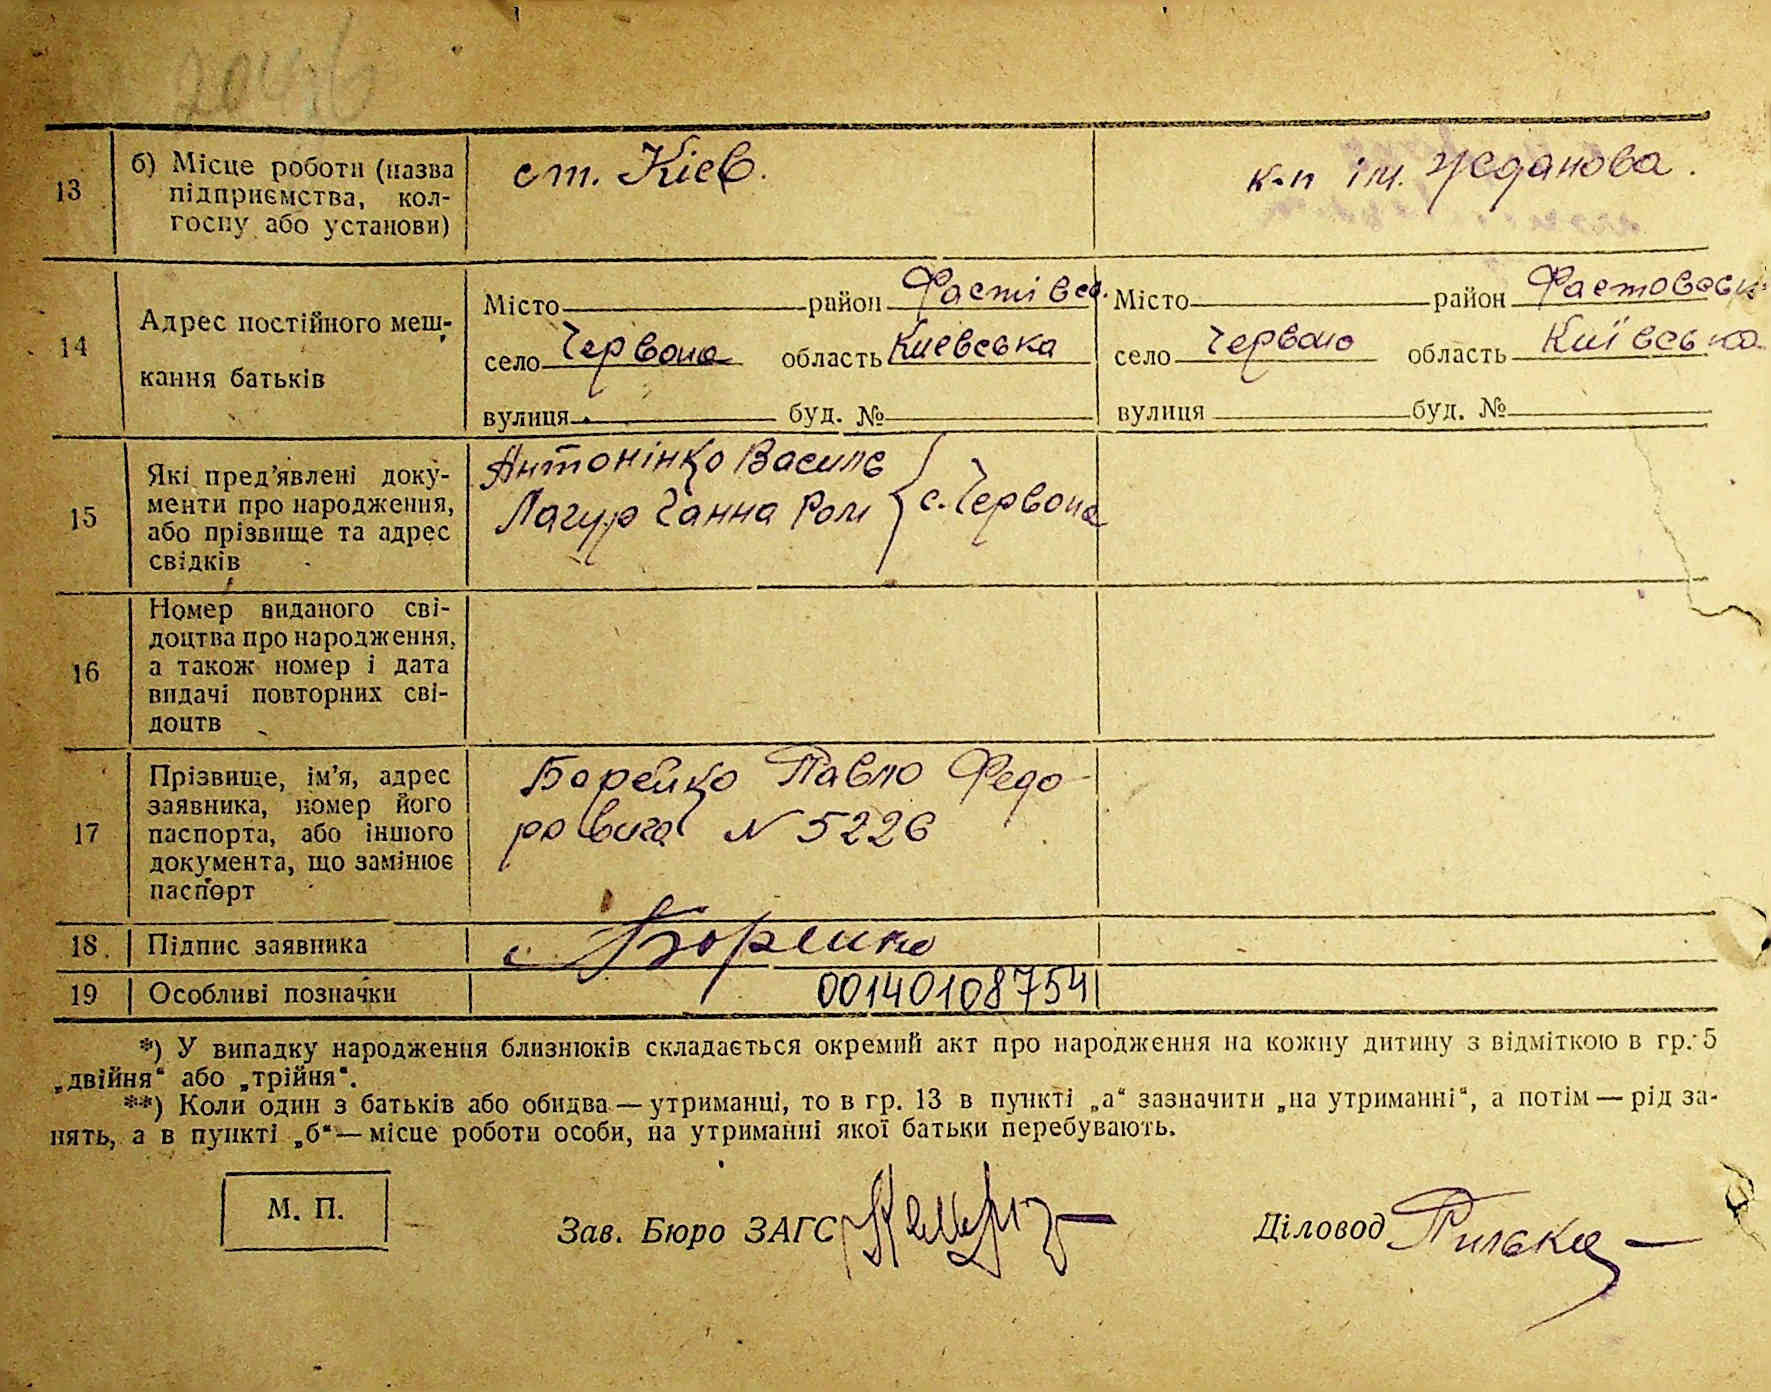 13
б) Місце роботи (назва
підприємства, кол-
госпу або установи)
ст. Кієв.
к-п ім. Жданова.
14
Адрес постійного меш-
кання батьків
Місто район Фастівсь.
село Червона область Киевська
вулиця буд. №
Місто район Фастовськ
село Червона область Київська
вулиця буд. №
15
Які пред'явлені доку-
менти про народження,
або прізвище та адрес
свідків
Антонінко Василь
Лагур Ганна Ром с. Червона
16
Номер виданого сві-
доцтва про народження,
а також номер і дата
видачі повторних сві-
доцтв
17
Прізвище, ім'я, адрес
заявника, номер його
паспорта, або іншого
документа, що замінює
паспорт
Борейко Павло Федо-
ровича N 5226
18.
Підпис заявника
Борейко
19
Особливі позначки
00140108754
*) У випадку народження близнюків складається окремий акт про народження на кожну дитину з відміткою в гр. 5
„двійня“ або „трійня“.
**) Коли один з батьків або обидва — утриманці, то в гр. 13 в пункті „а“ зазначити „на утриманні“, а потім — рід за-
нять, а в пункті „б“ — місце роботи особи, на утриманні якої батьки перебувають.
М. П.
Зав. Бюро ЗАГС
Діловод